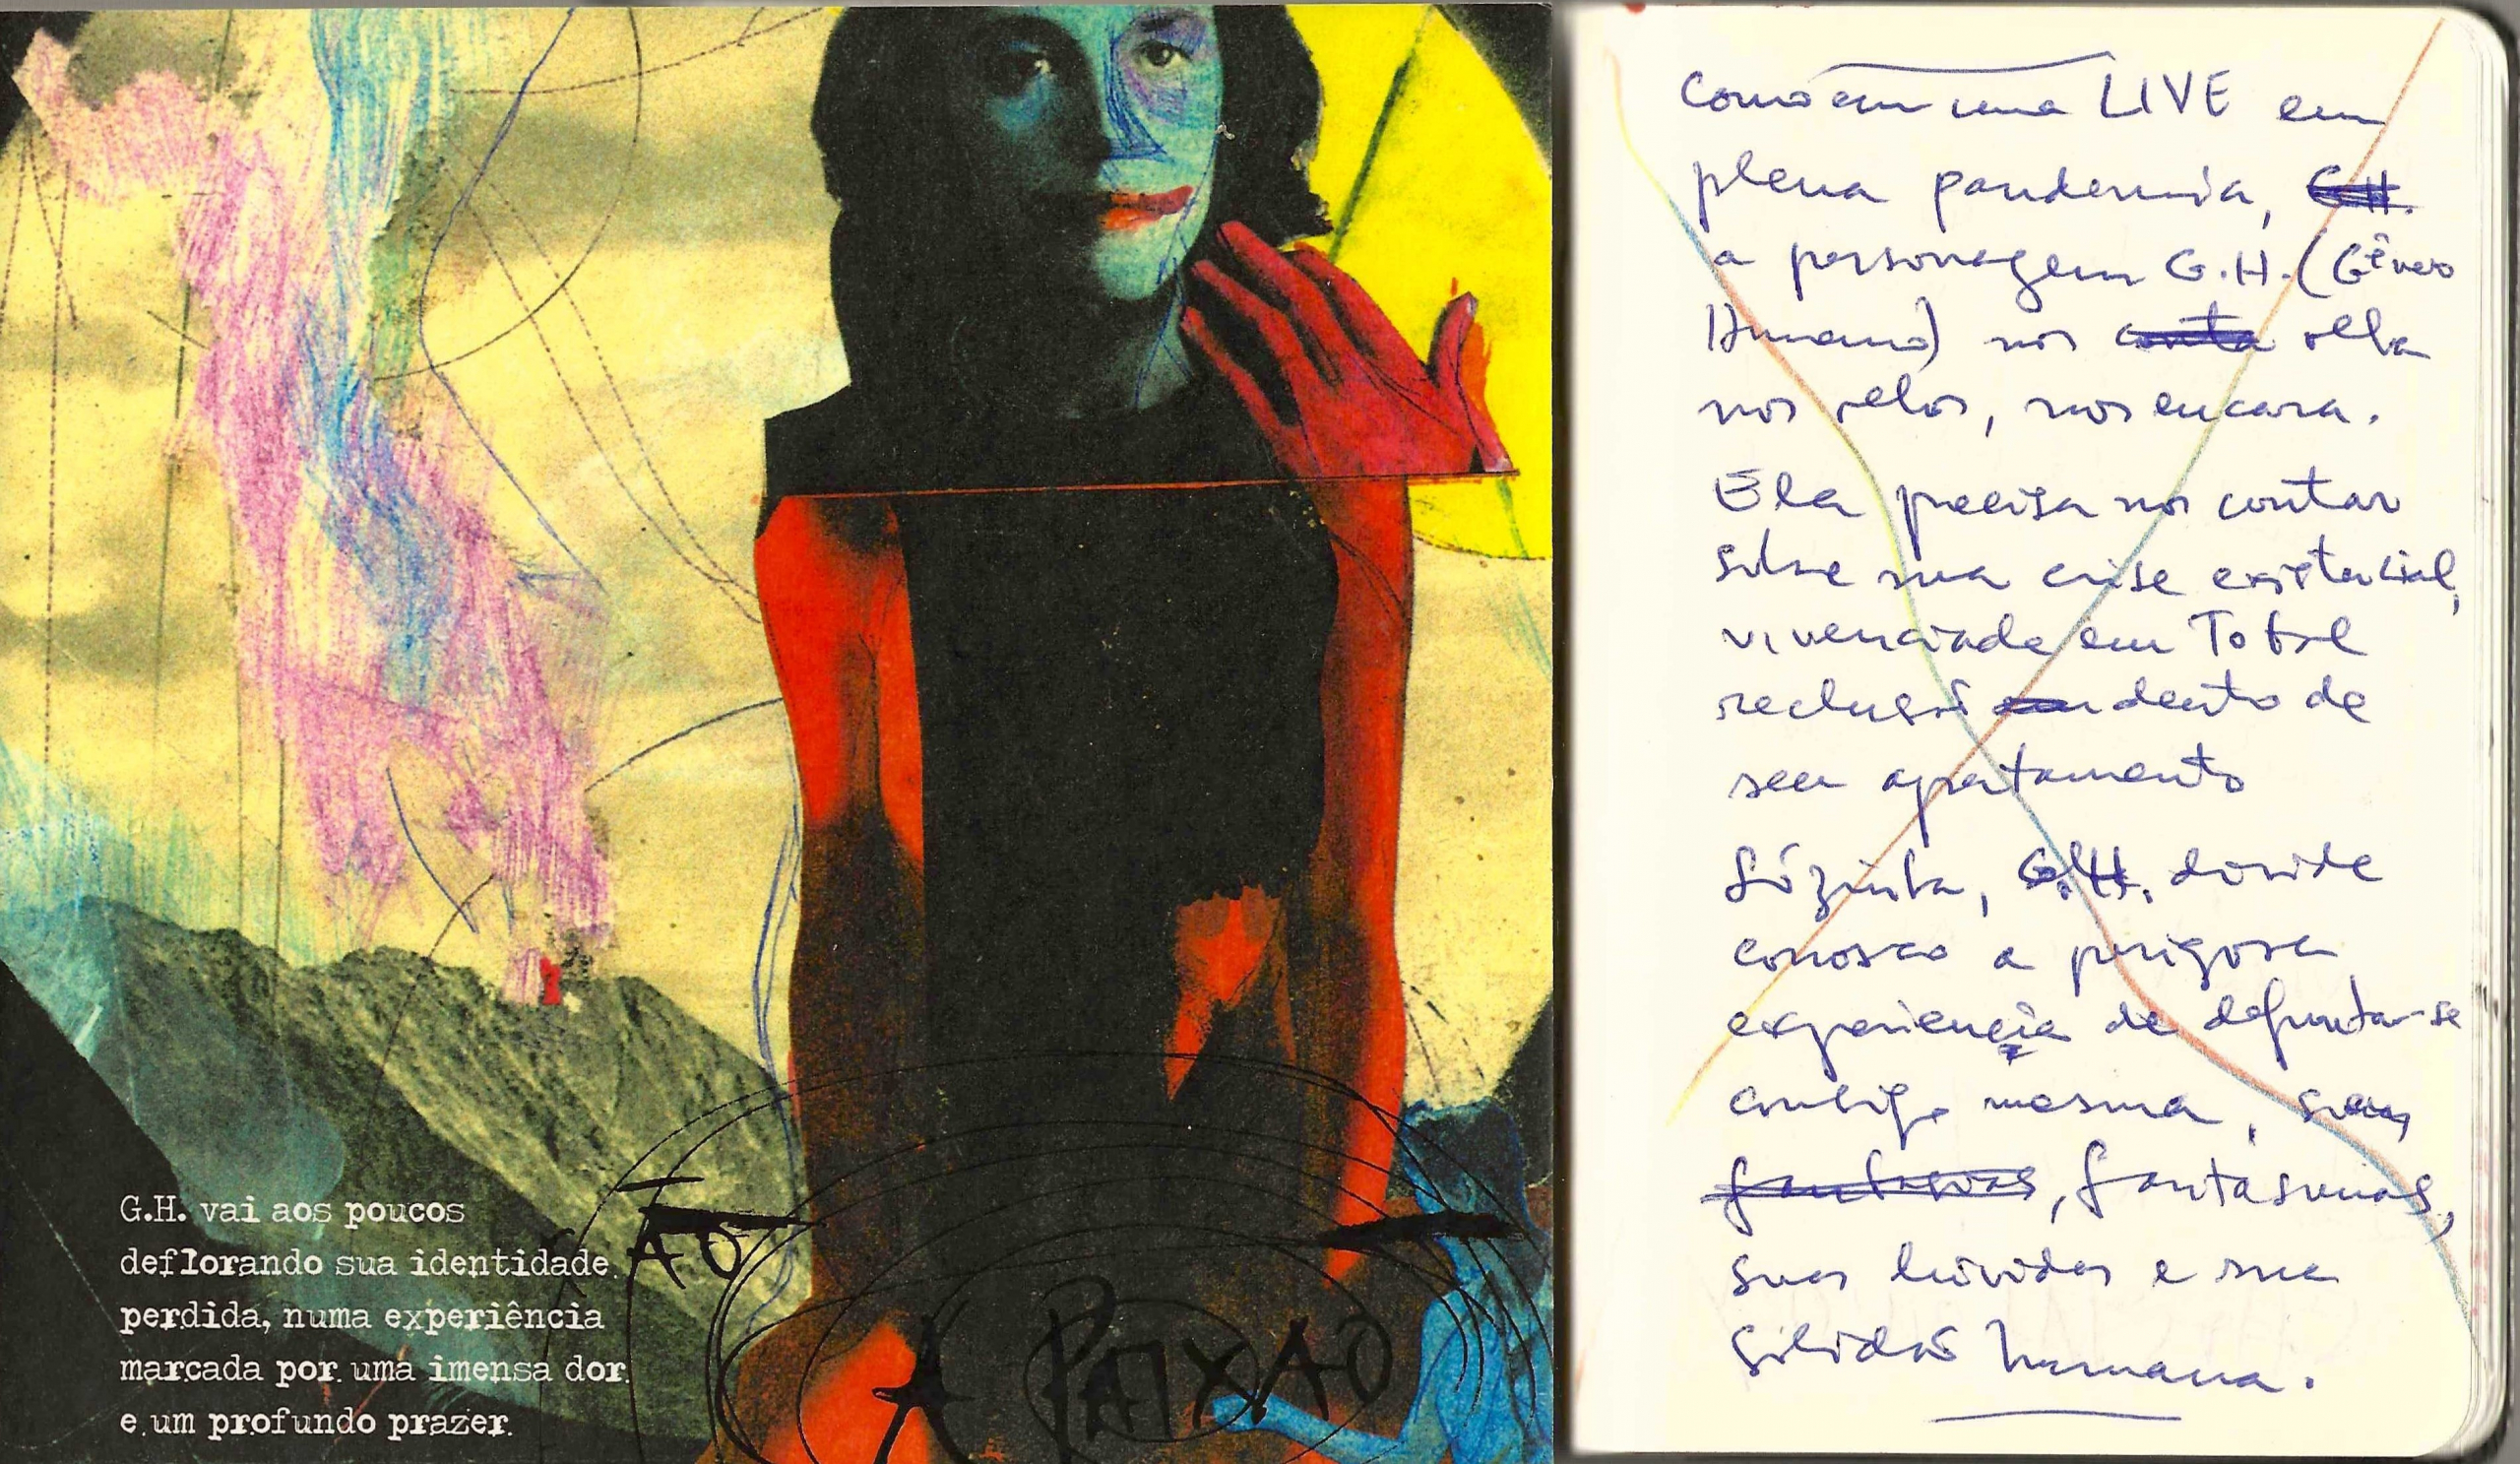 G.H. vai aos poucos
deflorando sua identidade
perdida, numa experiência
marcada por uma imensa dor
e um profundo prazer.
ÃO
A PAIXÃO
como em uma LIVE em
plena pandemia, G.H.
a personagem G.H. (Gênero
Humano) nos conta olha
nos olhos, nos encara.
Ela precisa nos contar
sobre sua crise existencial,
vivenciada em Total
reclusão em dento de
seu apartamento
Sózinha, G.H. divide
conosco a perigosa
experiencia de defrontar-se
consigo mesma, seus
fantasmas, fantasmas,
suas dúvidas e sua
solidão humana.